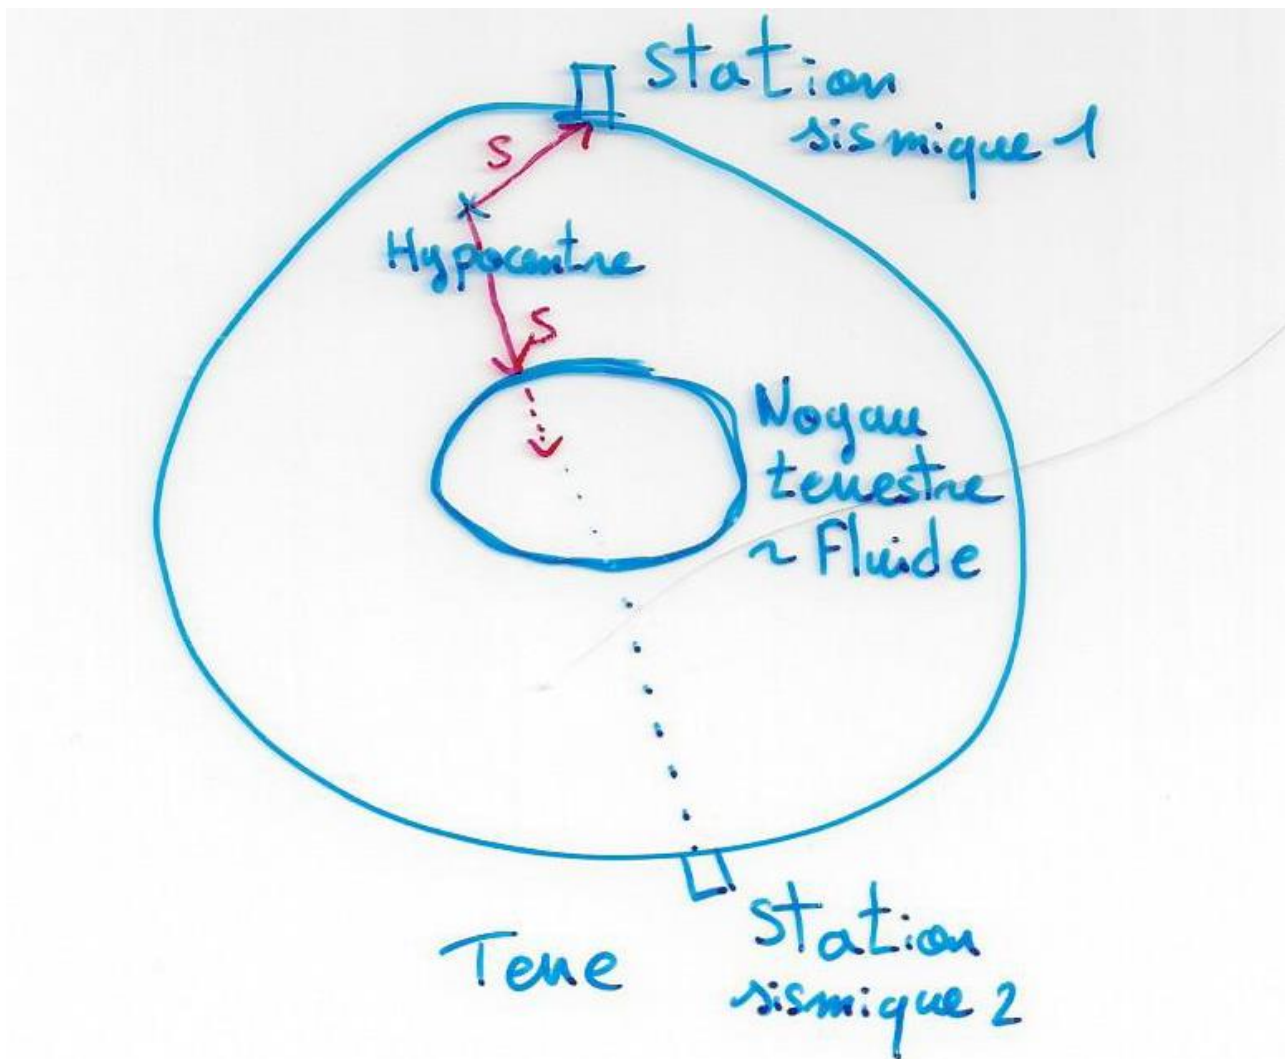 Station
sismique 1
S
Hypocentre
S
Noyau
terrestre
~ Fluide
Terre
Station
sismique 2